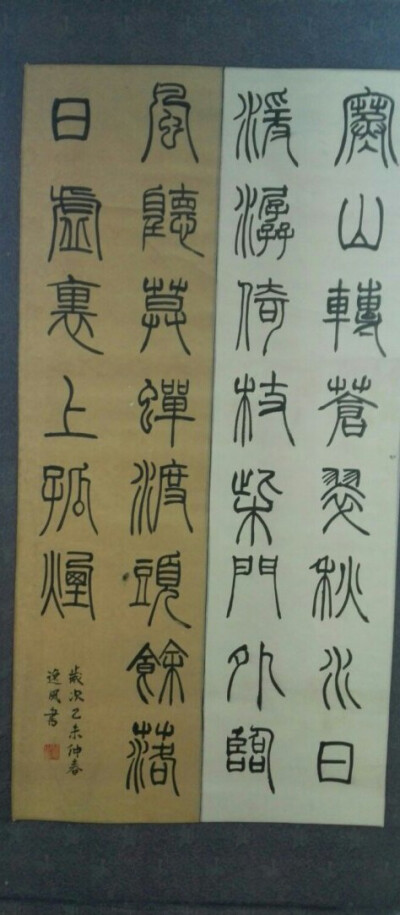 寒山轉蒼翠秋水日
湲潺倚杖柴門外臨
風聽莫蟬渡頭餘落
日虛裏上孤煙
歲次乙未仲春
逸風書